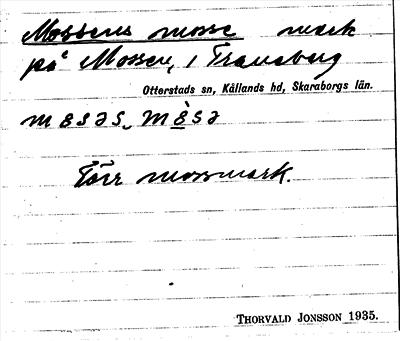 Mossens mosse mark
på Mossen, i Traneberg
Otterstads sn, Kållands hd, Skaraborgs län.
Torr mossmark.
THORVALD JONSSON 1935.